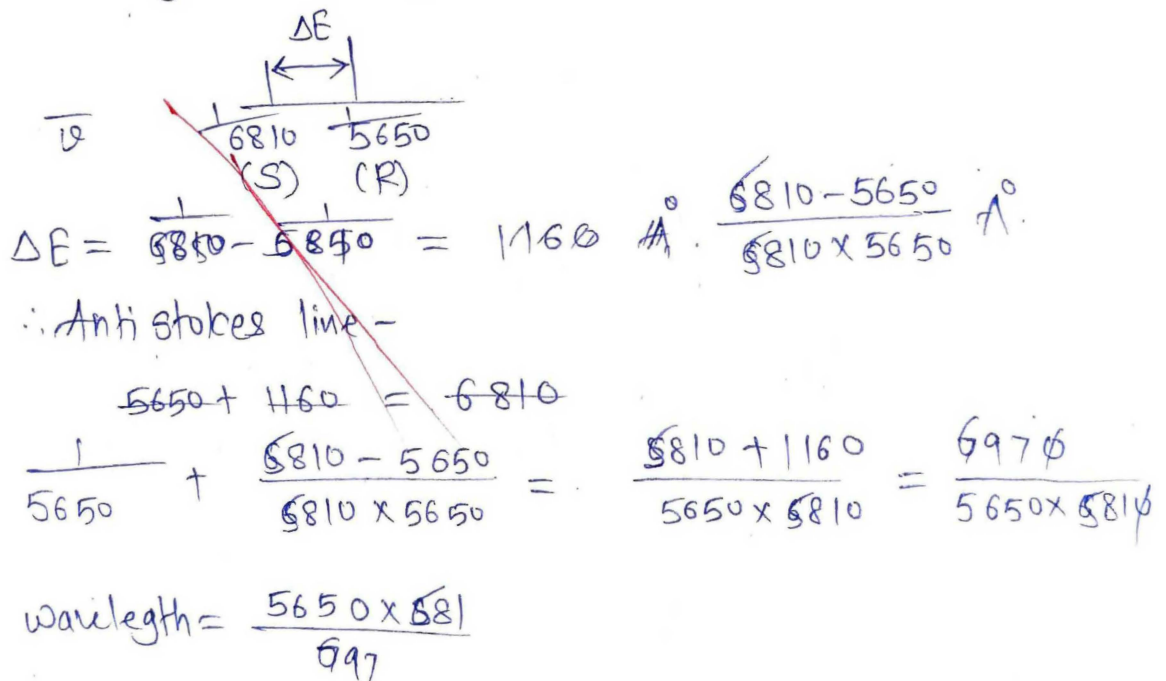 ΔE
ν̅ 1/6810 1/5650
(S) (R)
ΔE = 1/6810 - 1/5650 = 1160 Å. (6810-5650)/(6810×5650) Å.
∴ Anti stokes line -
5650 + 1160 = 6810
1/5650 + (6810 - 5650)/(6810 × 5650) = (6810 + 1160)/(5650 × 6810) = 6970/(5650 × 6810)
wavelegth = (5650 × 681)/697